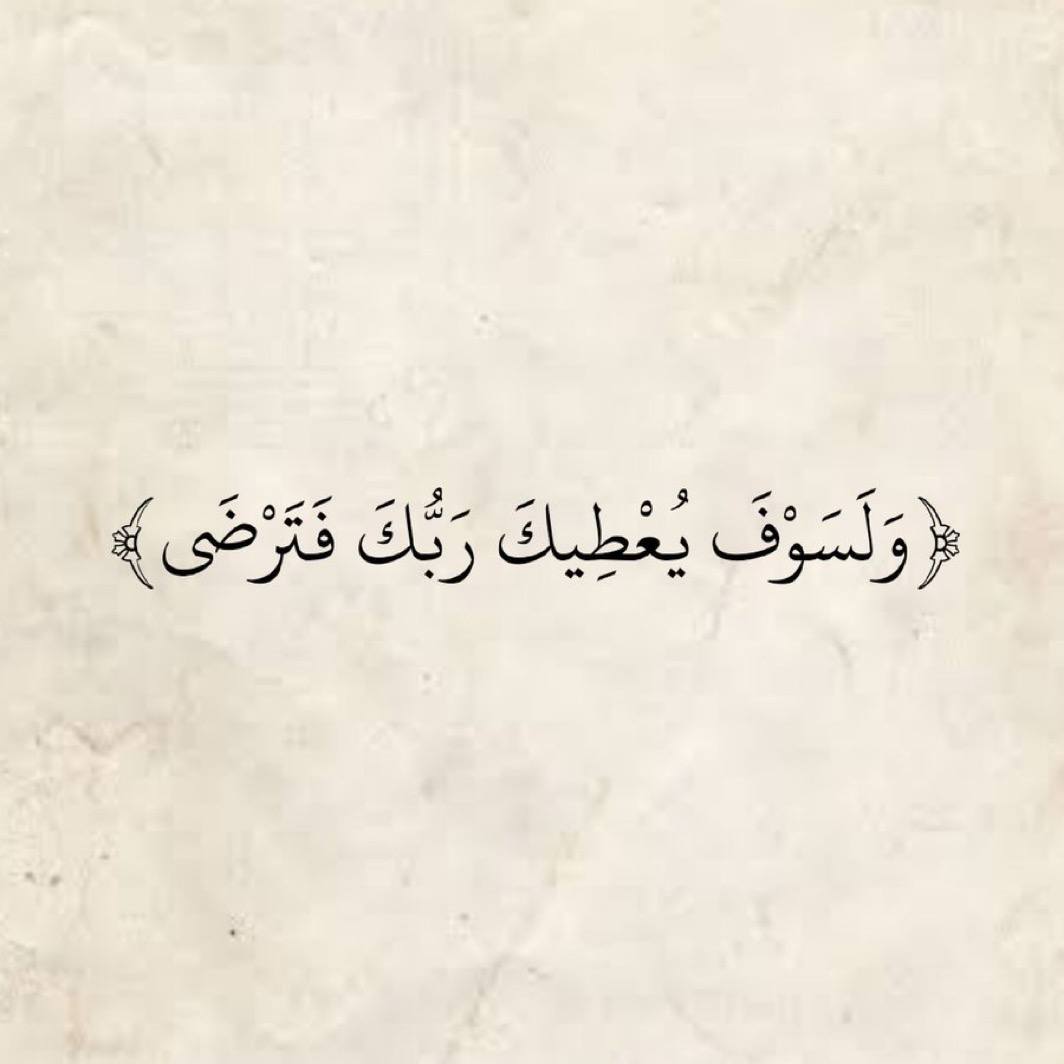 ﴿وَلَسَوْفَ يُعْطِيكَ رَبُّكَ فَتَرْضَى﴾